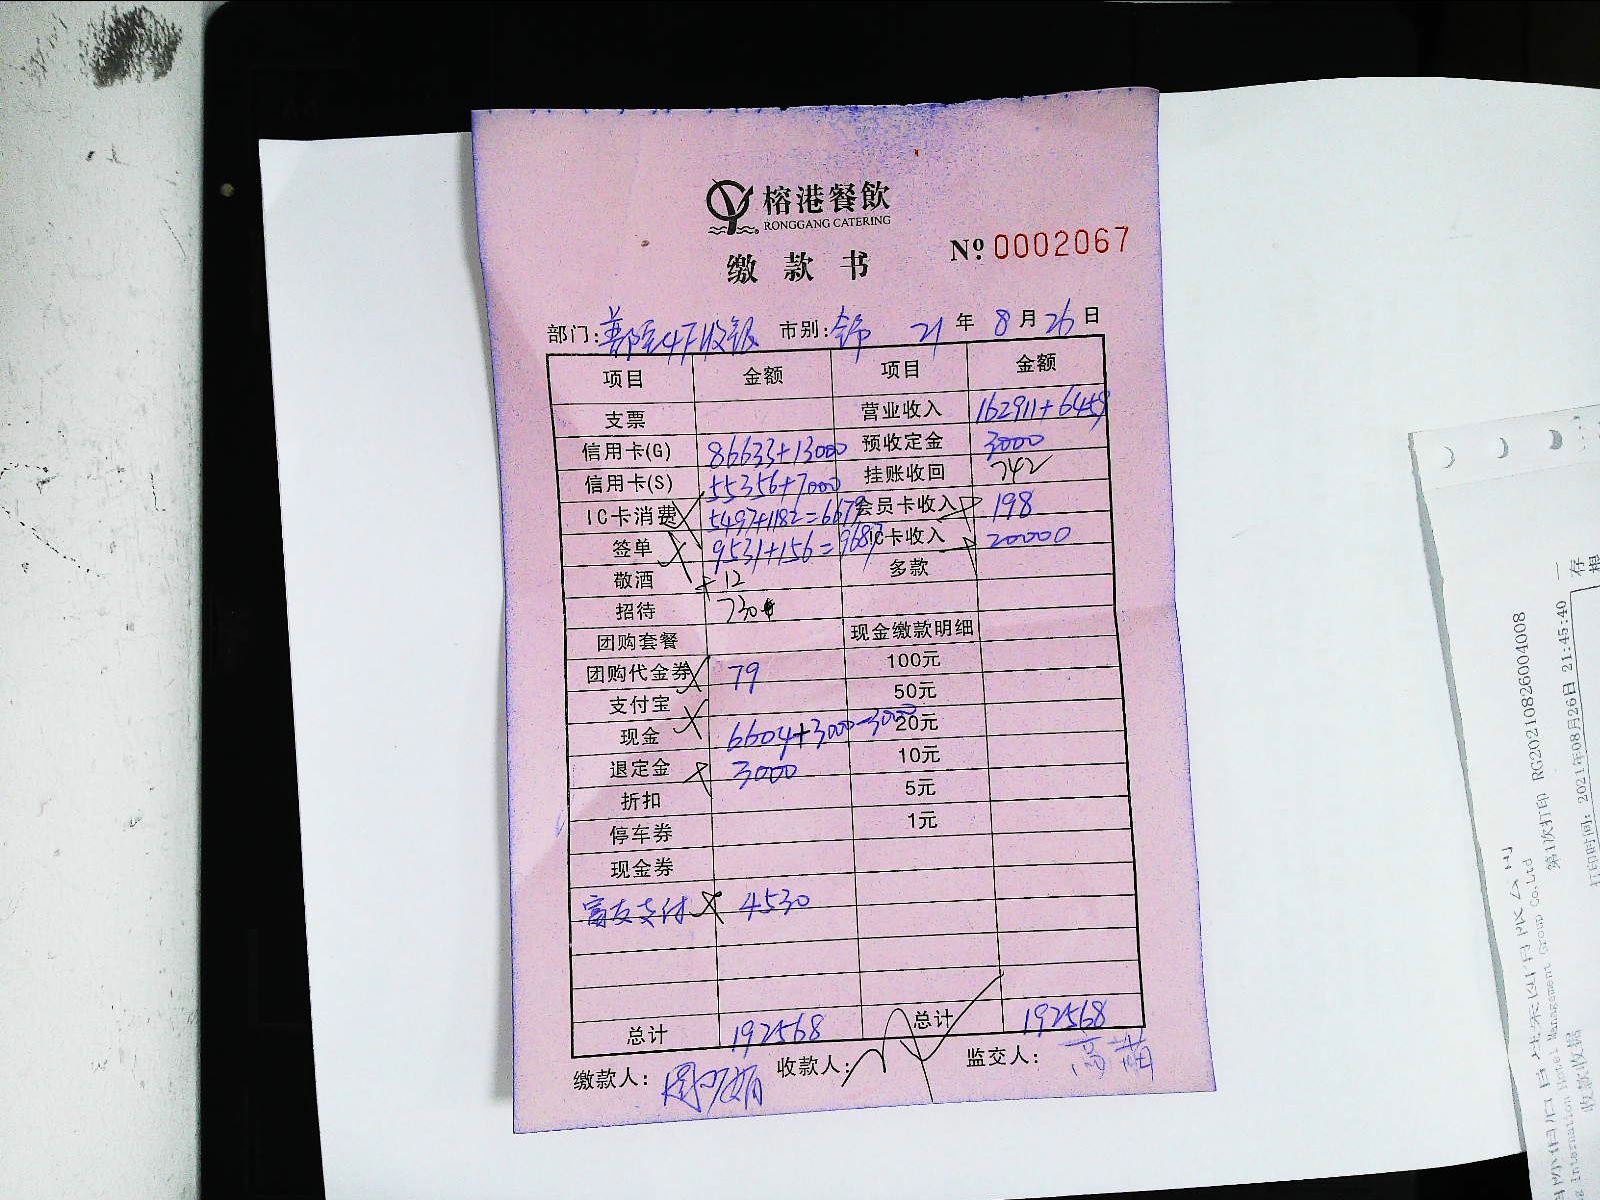 榕港餐飲
RONGGANG CATERING
缴款书
Nº 0002067
部门: 4F收银 市别: 21年8月26日
项目 金额 项目 金额
支票 营业收入 162911+6459
信用卡(G) 86633+13000 预收定金 3000
信用卡(S) 55356+7000 挂账收回 742
IC卡消费 5497+1182=6679 会员卡收入 198
签单 9531+156=9687 IC卡收入 20000
敬酒 12 多款
招待 730
团购套餐 现金缴款明细
团购代金券 79 100元
支付宝 50元
现金 6604+3000-3000 20元
退定金 3000 10元
折扣 5元
停车券 1元
现金券
富友支付 4530
总计 192568 总计 192568
缴款人: 收款人: 监交人:
第1次打印 RG20210826004008
打印时间: 2021年08月26日 21:45:40
International Hotel Management Group Co.Ltd
收款收据
存根